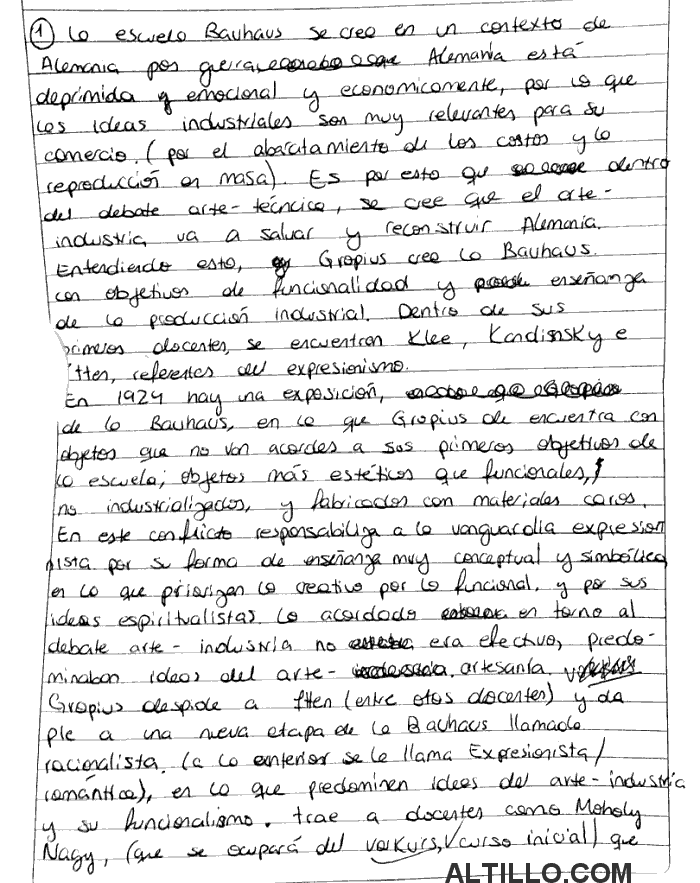 ① La escuela Bauhaus se crea en un contexto de
Alemania pos guerra Alemania está
deprimida y emocional y economicamente, por lo que
las ideas industriales son muy relevantes para su
comercio. (por el abaratamiento de los costos y la
reproducción en masa). Es por esto que dentro
del debate arte-técnica, se cree que el arte-
industria va a salvar y reconstruir Alemania.
Entendiendo esto, Gropius crea la Bauhaus.
con objetivos de funcionalidad y enseñanza
de la producción industrial. Dentro de sus
primeros docentes, se encuentran Klee, Kandinsky e
Itten, referentes del expresionismo.
En 1924 hay una exposición,
de la Bauhaus, en la que Gropius de encuentra con
objetos que no van acordes a sus primeros objetivos de
la escuela; objetos más estéticos que funcionales,
no industrializados, y fabricados con materiales caros.
En este conflicto responsabiliza a la vanguardia expresion
nista por su forma de enseñanza muy conceptual y simbólica,
en la que priorizan lo creativo por lo funcional, y por sus
ideas espiritualistas. Lo acordado en torno al
debate arte-industria no era efectivo, predo-
minaban ideas del arte- artesanía.
Gropius despide a Itten (entre otos docentes) y da
pie a una nueva etapa de la Bauhaus llamada
racionalista. (a la anterior se le llama Expresionista/
romántica), en la que predominen ideas del arte-industria
y su funcionalismo. trae a docentes como Moholy
Nagy, (que se ocupará del vorkurs, curso inicial) que
ALTILLO.COM